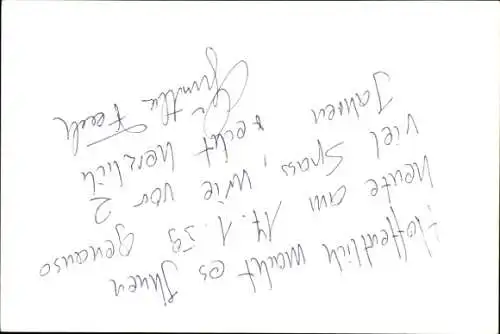 Hoffentlich macht es Ihnen
heute am 14.1.59 genauso
viel Spass, wie vor 2
Jahren recht herzlich